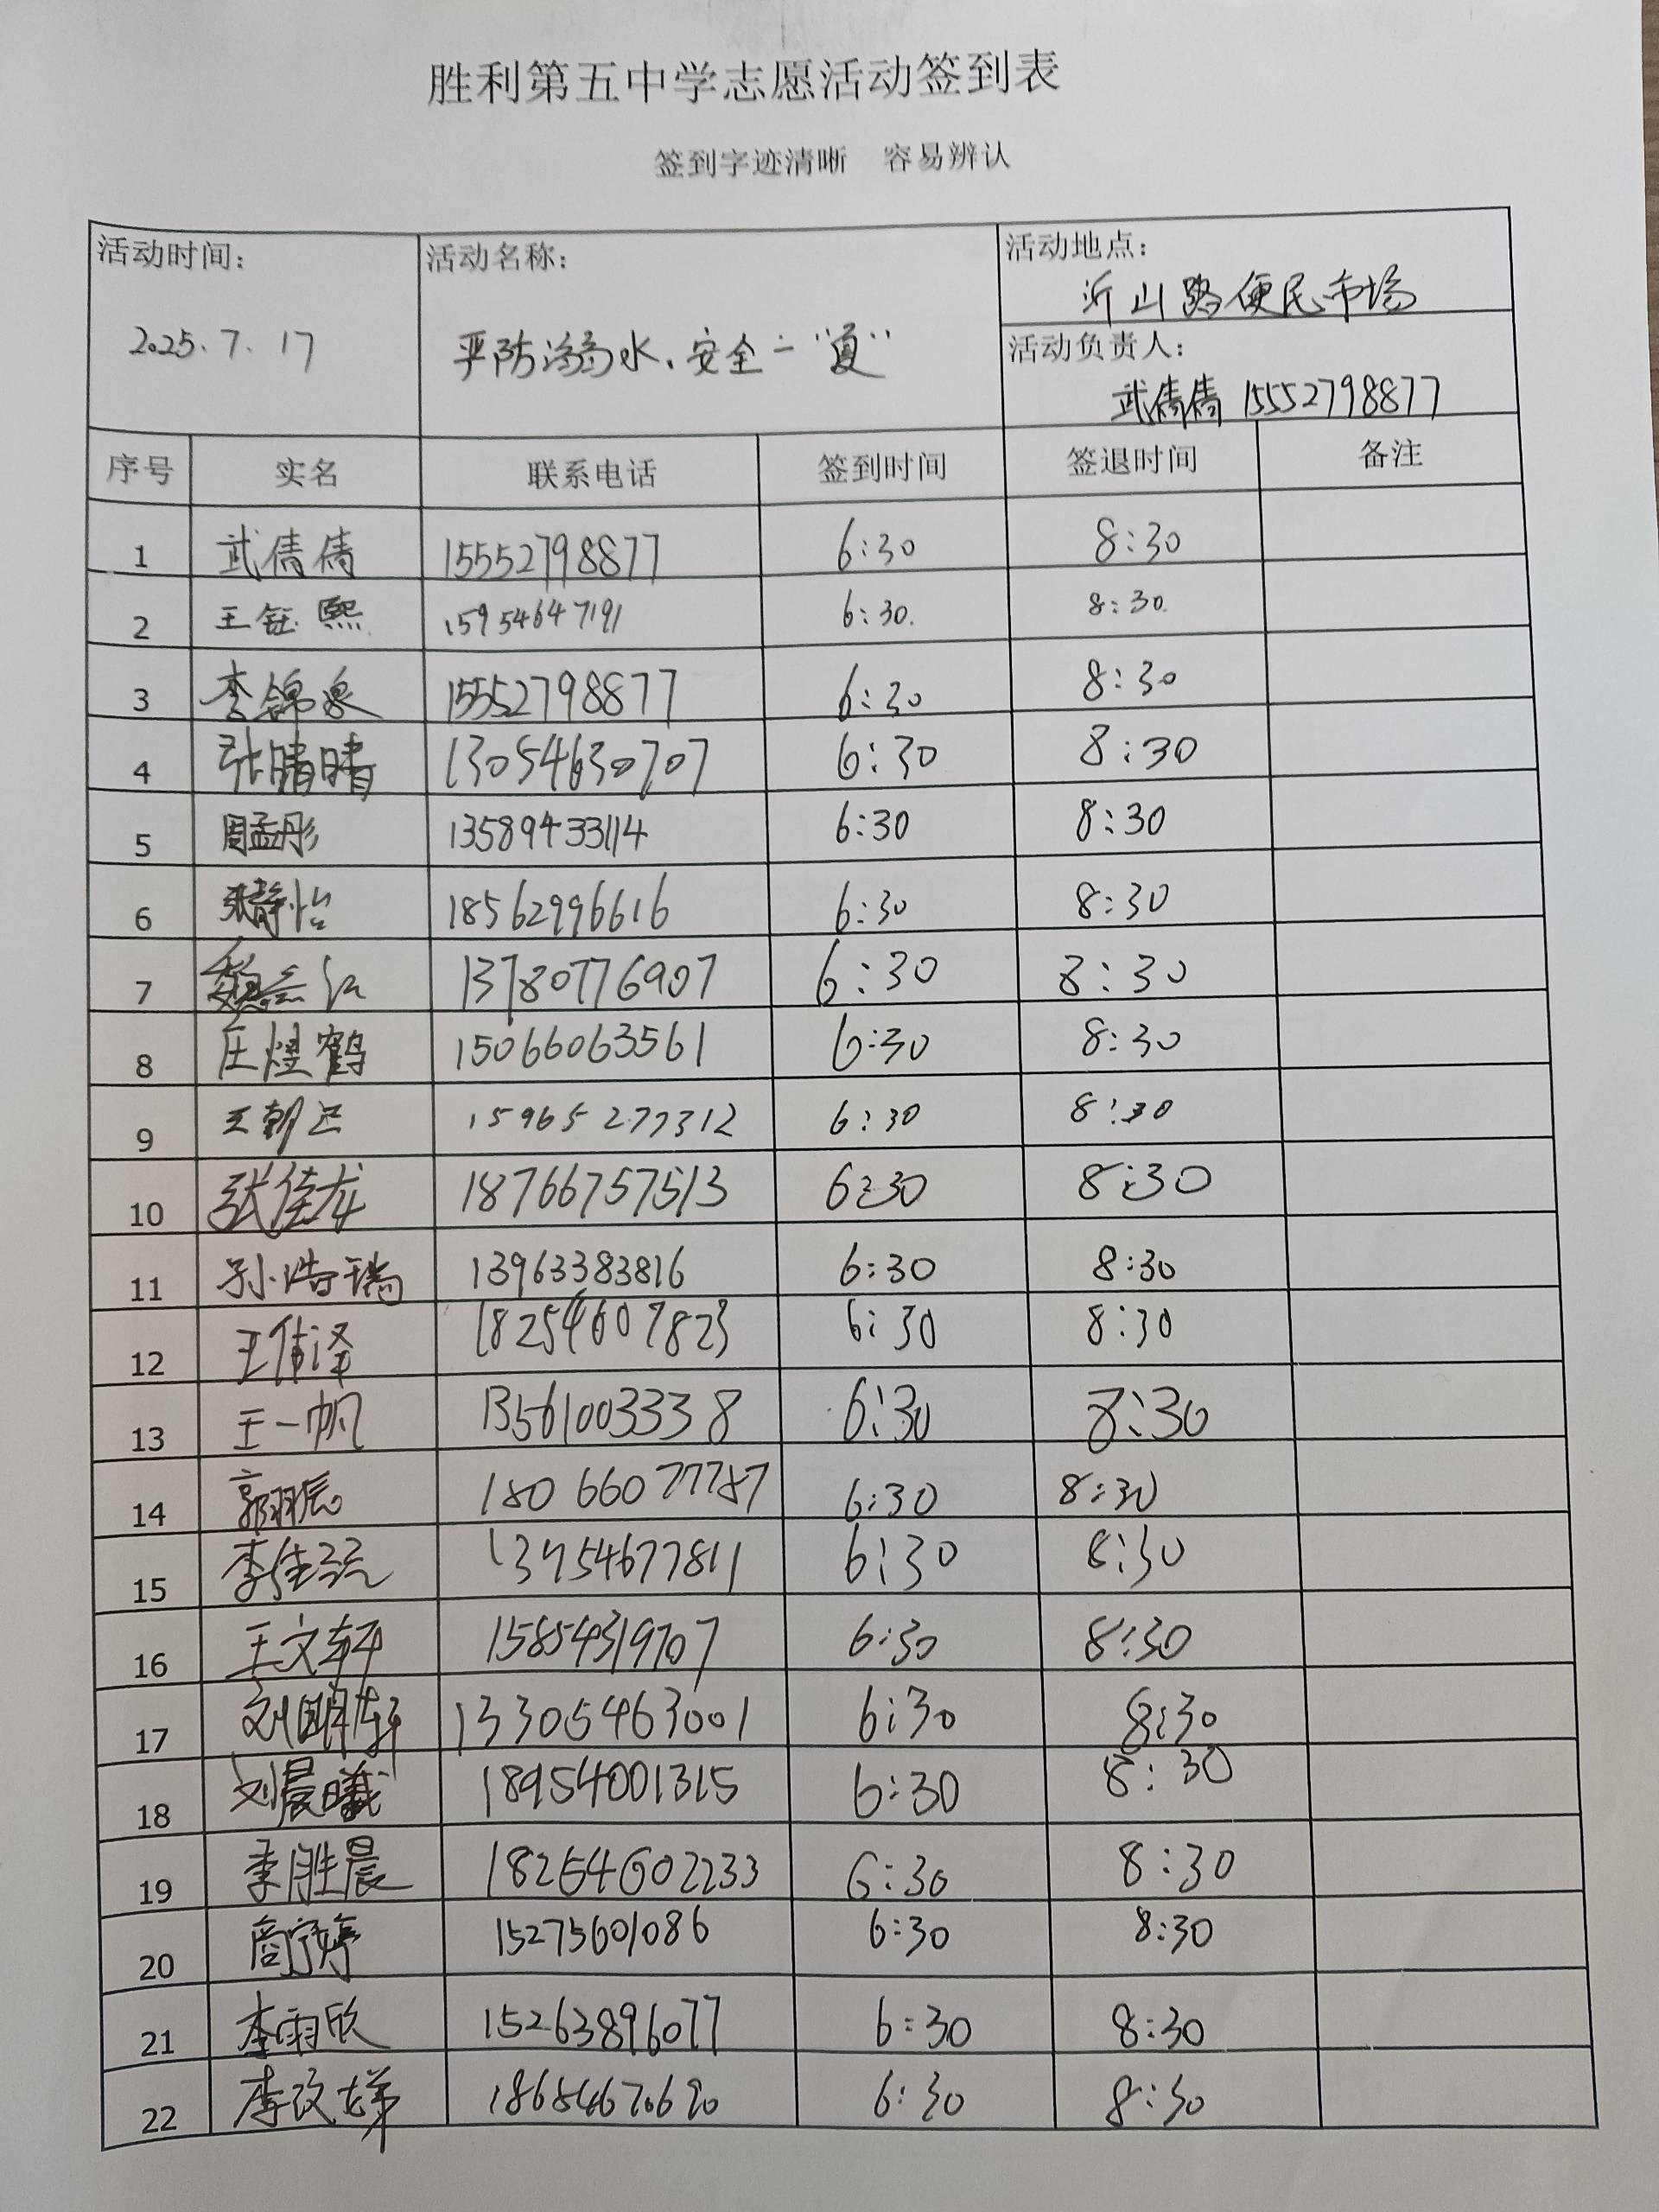 胜利第五中学志愿活动签到表
签到字迹清晰 容易辨认
活动时间: 活动名称: 活动地点:
沂山路便民市场
2025.7.17 严防溺水、安全一“夏”
活动负责人:
武倩倩 15552798877
序号 实名 联系电话 签到时间 签退时间 备注
1 武倩倩 15552798877 6:30 8:30
2 王钰熙 15954647191 6:30. 8:30.
3 李锦泉 15552798877 6:30 8:30
4 张晴晴 13054630707 6:30 8:30
5 周孟彤 13589433114 6:30 8:30
6 张静怡 18562996616 6:30 8:30
7 13780776907 6:30 8:30
8 庄煜鹤 15066063561 6:30 8:30
9 王朝正 15965277312 6:30 8:30
10 张佳龙 18766757513 6:30 8:30
11 孙浩瑞 13963383816 6:30 8:30
12 王伟泽 18254607823 6:30 8:30
13 王一帆 13561003338 6:30 8:30
14 郭羽辰 18066077787 6:30 8:30
15 6:30 8:30
16 王文轩 15854319707 6:30 8:30
17 刘明轩 13305463001 6:30 8:30
18 刘晨曦 18954001315 6:30 8:30
19 李胜晨 18264602233 6:30 8:30
20 商宁婷 15275601086 6:30 8:30
21 李雨欣 15263896077 6:30 8:30
22 6:30 8:30